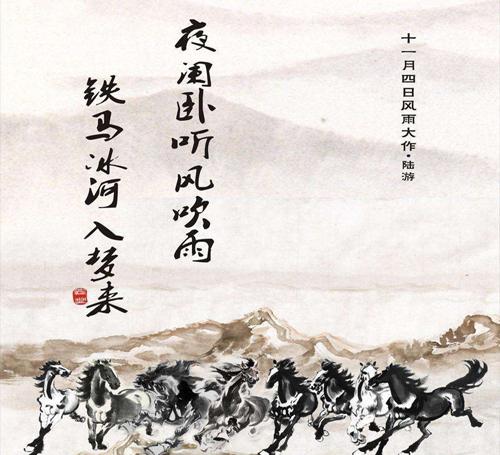 十一月四日风雨大作·陆游
夜阑卧听风吹雨
铁马冰河入梦来